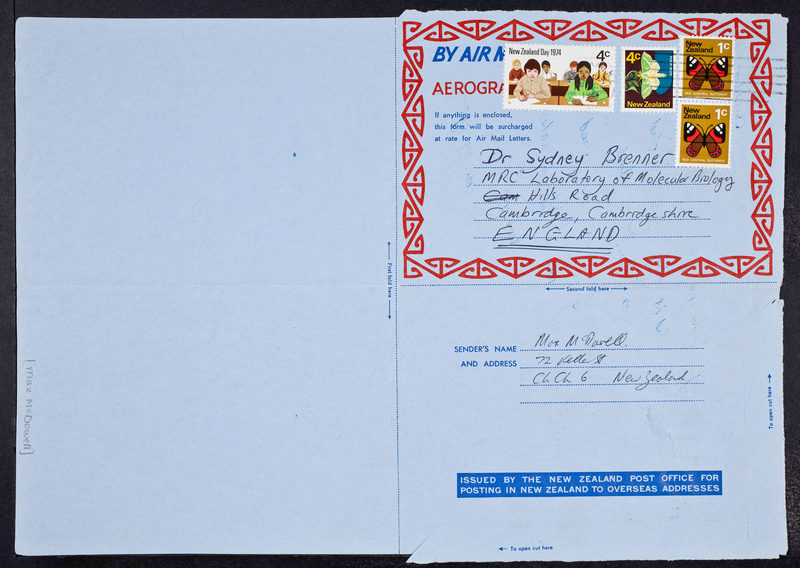 BY AIR M
AEROGRA
New Zealand Day 1974 4c
4c
New Zealand
New Zealand 1c
RED ADMIRAL BUTTERFLY
New Zealand 1c
RED ADMIRAL BUTTERFLY
If anything is enclosed,
this form will be surcharged
at rate for Air Mail Letters.
Dr Sydney Brenner
MRC Laboratory of Molecular Biology
Cam Hills Road
Cambridge, Cambridgeshire
ENGLAND
← First fold here →
← Second fold here →
SENDER'S NAME Max McDowell
AND ADDRESS 72 St
ChCh 6 New Zealand
To open cut here →
ISSUED BY THE NEW ZEALAND POST OFFICE FOR
POSTING IN NEW ZEALAND TO OVERSEAS ADDRESSES
← To open cut here
[Max McDowell]